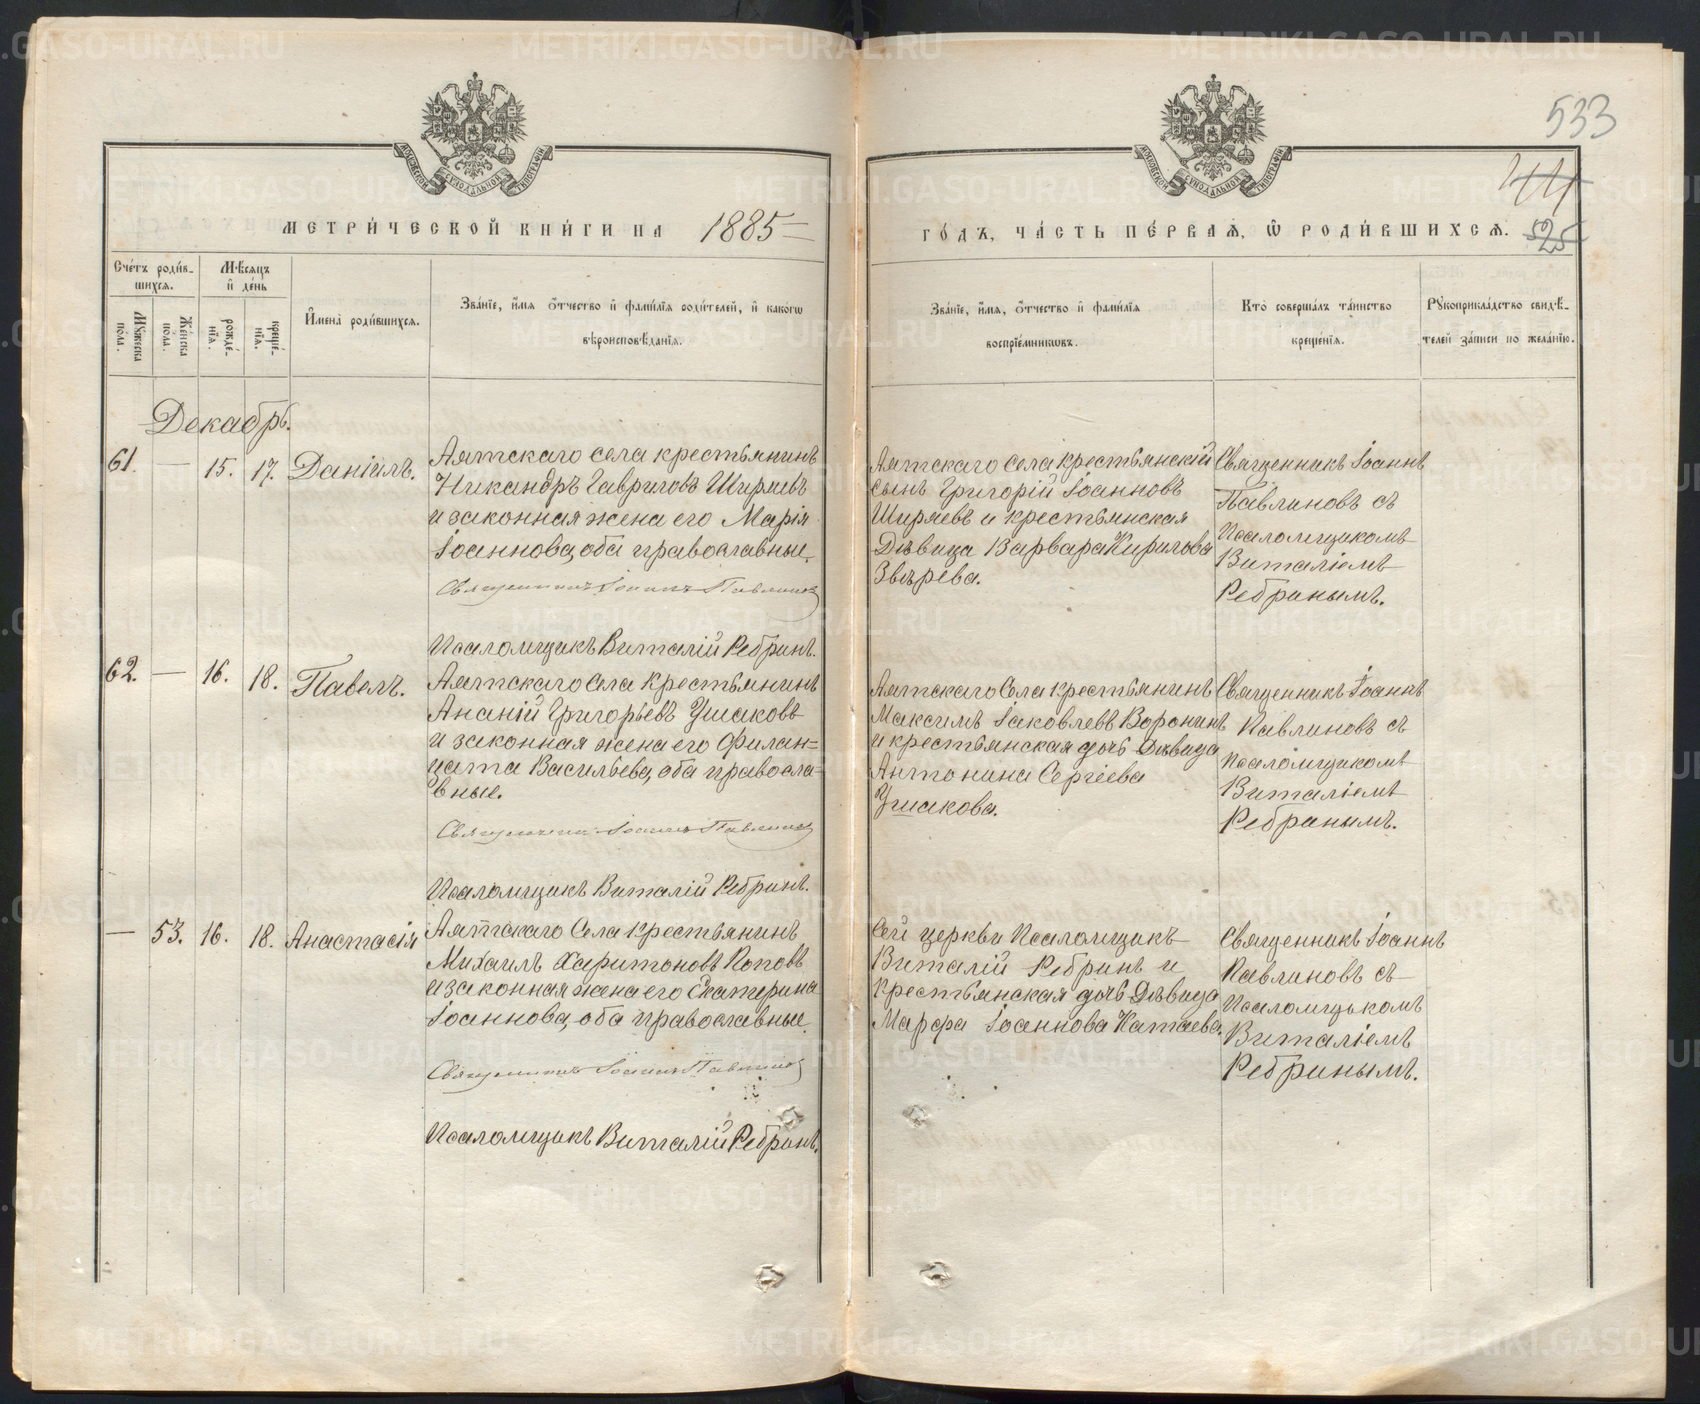 533
44
525
МОСКОВСКОЙ СѴНОДАЛЬНОЙ ТИПОГРАФІИ
МОСКОВСКОЙ СѴНОДАЛЬНОЙ ТИПОГРАФІИ
МЕТРИ́ЧЕСКОЙ КНИ́ГИ НА 1885
ГО́ДЪ, ЧА́СТЬ ПЕ́РВАѦ, Ѽ РОДИ́ВШИХСѦ.
Сче́тъ роди́в-
шихсѧ.
Мꙋжеска по́ла.
Же́нска по́ла.
Мѣ́сѧцъ
и҆ де́нь
рожде́-
нїѧ.
креще́-
нїѧ.
И҆мена̀ роди́вшихсѧ.
Зва́нїе, и҆́мѧ ѻ҆́тчество и҆ фами́лїѧ роди́телей, и҆ како́гѡ
вѣроисповѣ́данїѧ.
Зва́нїе, и҆́мѧ, ѻ҆́тчество и҆ фами́лїѧ
воспрїе́мникѡвъ.
Кто̀ соверша́лъ та́инство
креще́нїѧ.
Рꙋкоприкла́дство свидѣ́-
телей за́писи по жела́нїю.
Декабрь.
61. — 15. 17. Даніилъ.
Аятскаго села крестьянинъ
Никандръ Гавриловъ Ширяевъ
и законная жена его Марія
Іоаннова, оба православные.
Священникъ Іоаннъ Павлинов
Псаломщикъ Виталій Ребринъ.
Аятскаго села крестьянскій
сынъ Григорій Іоанновъ
Ширяевъ и крестьянская
Дѣвица Варвара Кирилова
Звѣрева.
Священникъ Іоаннъ
Павлиновъ съ
Псаломщикомъ
Виталіемъ
Ребринымъ.
62. — 16. 18. Павелъ.
Аятскаго Села крестьянинъ
Ананій Григорьевъ Ушаковъ
и законная жена его Филан=
цата Васильева, оба правосла-
вные.
Священникъ Іоаннъ Павлинов
Псаломщикъ Виталій Ребринъ.
Аятскаго Села крестьянинъ
Максимъ Іаковлевъ Воронинъ
и крестьянская дочь Дѣвица
Антонина Сергіева
Ушакова.
Священникъ Іоаннъ
Павлиновъ съ
Псаломщикомъ
Виталіемъ
Ребринымъ.
— 53. 16. 18. Анастасія
Аятскаго Села крестьянинъ
Михаилъ Харитоновъ Поповъ
и законная жена его Екатерина
Іоаннова, оба православные.
Священникъ Іоаннъ Павлинов
Псаломщикъ Виталій Ребринъ.
Сей церкви Псаломщикъ
Виталій Ребринъ и
крестьянская дочь Дѣвица
Марфа Іоаннова Катаева.
Священникъ Іоаннъ
Павлиновъ съ
Псаломщикомъ
Виталіемъ
Ребринымъ.
METRIKI.GASO-URAL.RU